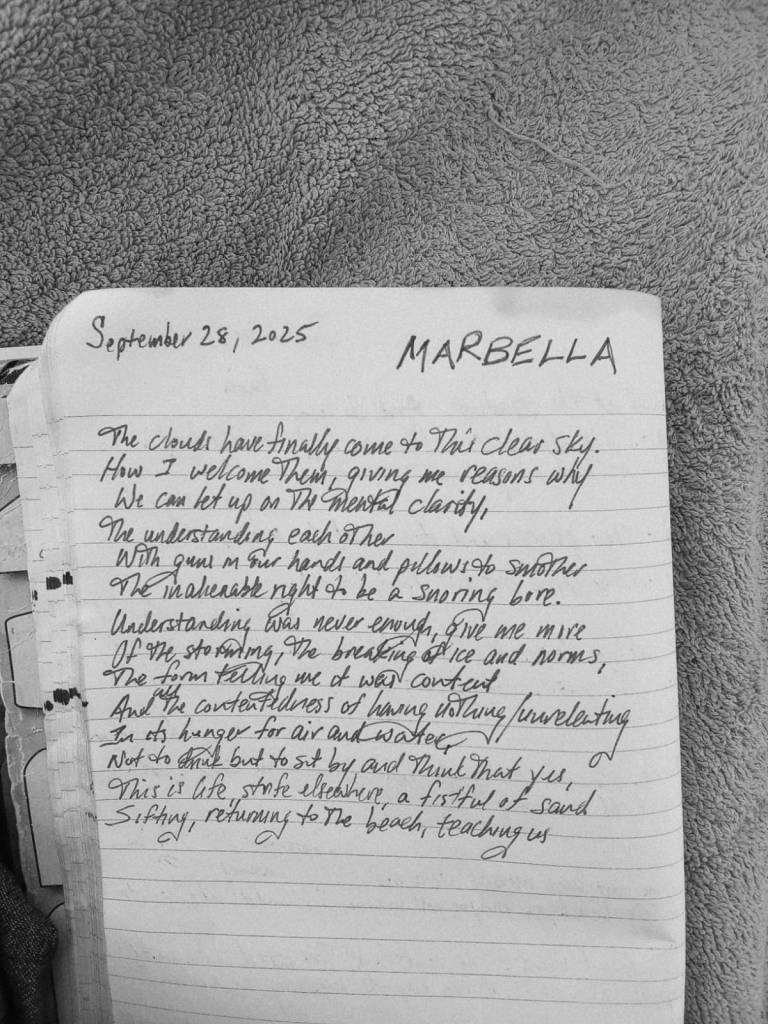 September 28, 2025
MARBELLA
The clouds have finally come to this clear sky.
How I welcome them, giving me reasons why
We can let up on the mental clarity,
The understanding each other
With guns in our hands and pillows to smother
The inalienable right to be a snoring bore.
Understanding was never enough, give me more
Of the storming, the breaking of ice and norms,
The form telling me it was content
And all the contentedness of having nothing/unrelenting
In its hunger for air and water,
Not to drink but to sit by and think that yes,
This is life, strife elsewhere, a fistful of sand
Sifting, returning to the beach, teaching us